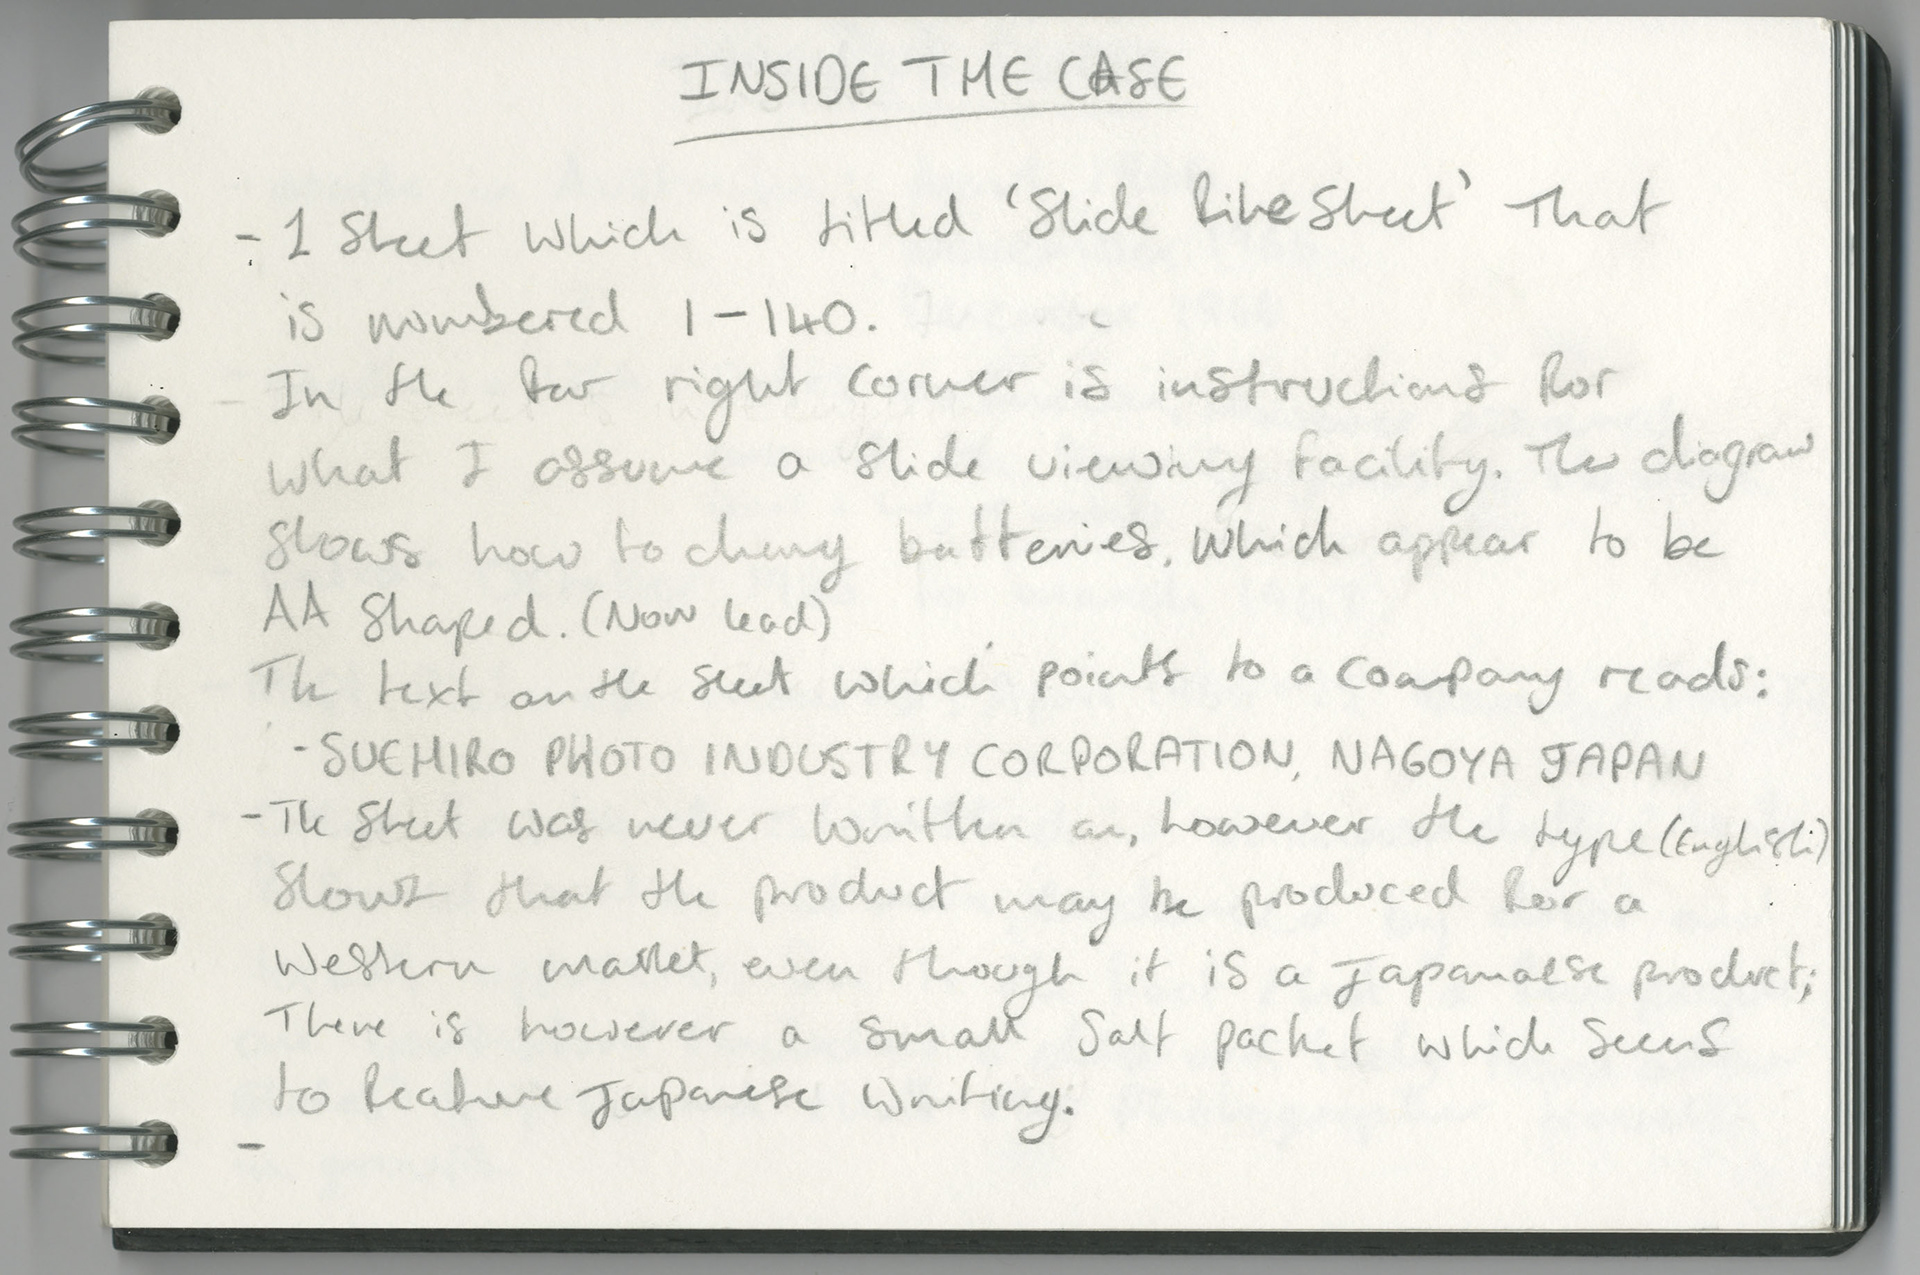 INSIDE THE CASE
- 1 Sheet which is titled 'Slide File Sheet' That
is numbered 1-140.
In the far right corner is instructions for
what I assume a slide viewing facility. The diagram
shows how to change batteries, which appear to be
AA shaped. (Now lead)
The text on the sheet which points to a company reads:
- SUEHIRO PHOTO INDUSTRY CORPORATION, NAGOYA JAPAN
- The sheet was never written on, however the type (English)
shows that the product may be produced for a
western market, even though it is a Japanaese product;
There is however a small Salt packet which seems
to feature Japanese writing.
-